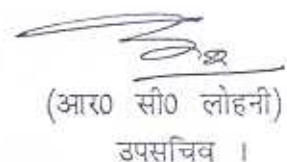 (आर0 सी0 लोहनी)
उपसचिव ।